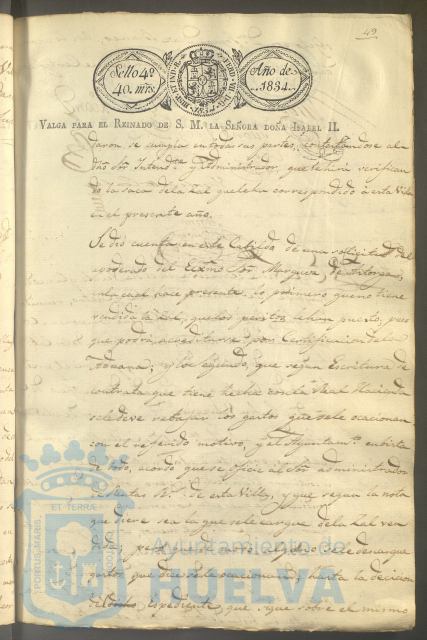 49
Sello 4º
40. mrs.
HISP. ET IND. R.
FERD. VII. D. G.
1834
Año de
1834.
VALGA PARA EL REINADO DE S. M. LA SEÑORA DOÑA ISABEL II.
daron se cumpla en todas sus partes, contestandose al
dho Sor Intendte y Administrador, que se hirá verifican
do la saca de la sal que le ha correspondido a esta Villa
en el presente año.
Se dio cuenta en este Cabildo de una sollicitud del
apoderado del Exmo Sor Marques de Astorga,
en la cual hace presente, lo primero que no tiene
vendida la sal, que los peritos le han puesto, pues
que podrá acreditarse por Certificacion de la
Aduana; y lo segundo, que segun Escritura de
contrata que tiene hecha con la Real Hacienda
se le deve rebajar los gastos que se le ocacionan
con el referido motivo, y el Ayuntamto en vista
de todo, acordó que se oficie al Sor administrador
de Rentas Rs de esta Villa, y que segun la nota
que diere sea la que se le cargue de la sal ven
dida,
gastos que se le ocacionan, hasta la decicion
del dicho Expediente, que sigue sobre el mismo
ET TERRÆ
PORTUS MARIS
CUSTODIA
Ayuntamiento de
HUELVA